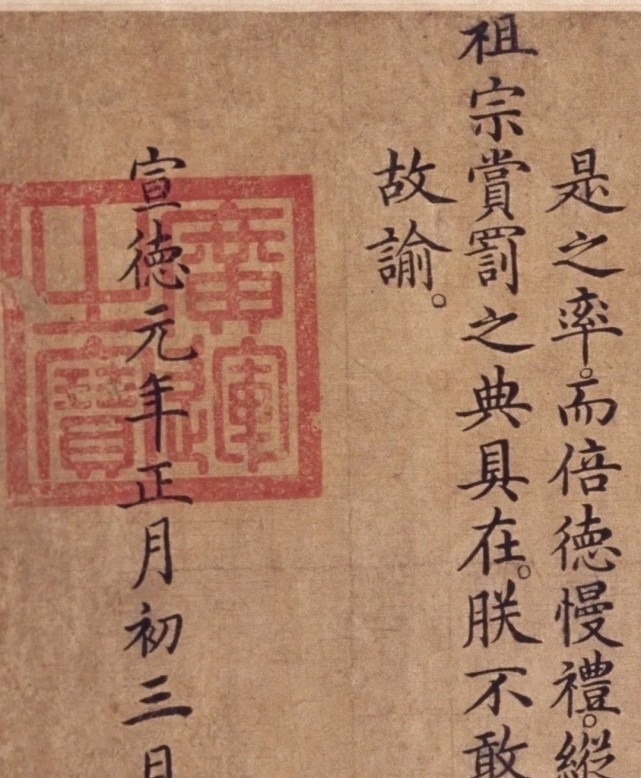 是之率。而倍德慢禮。縱
祖宗賞罰之典具在。朕不敢
故諭。
宣德元年正月初三日
廣運之寶